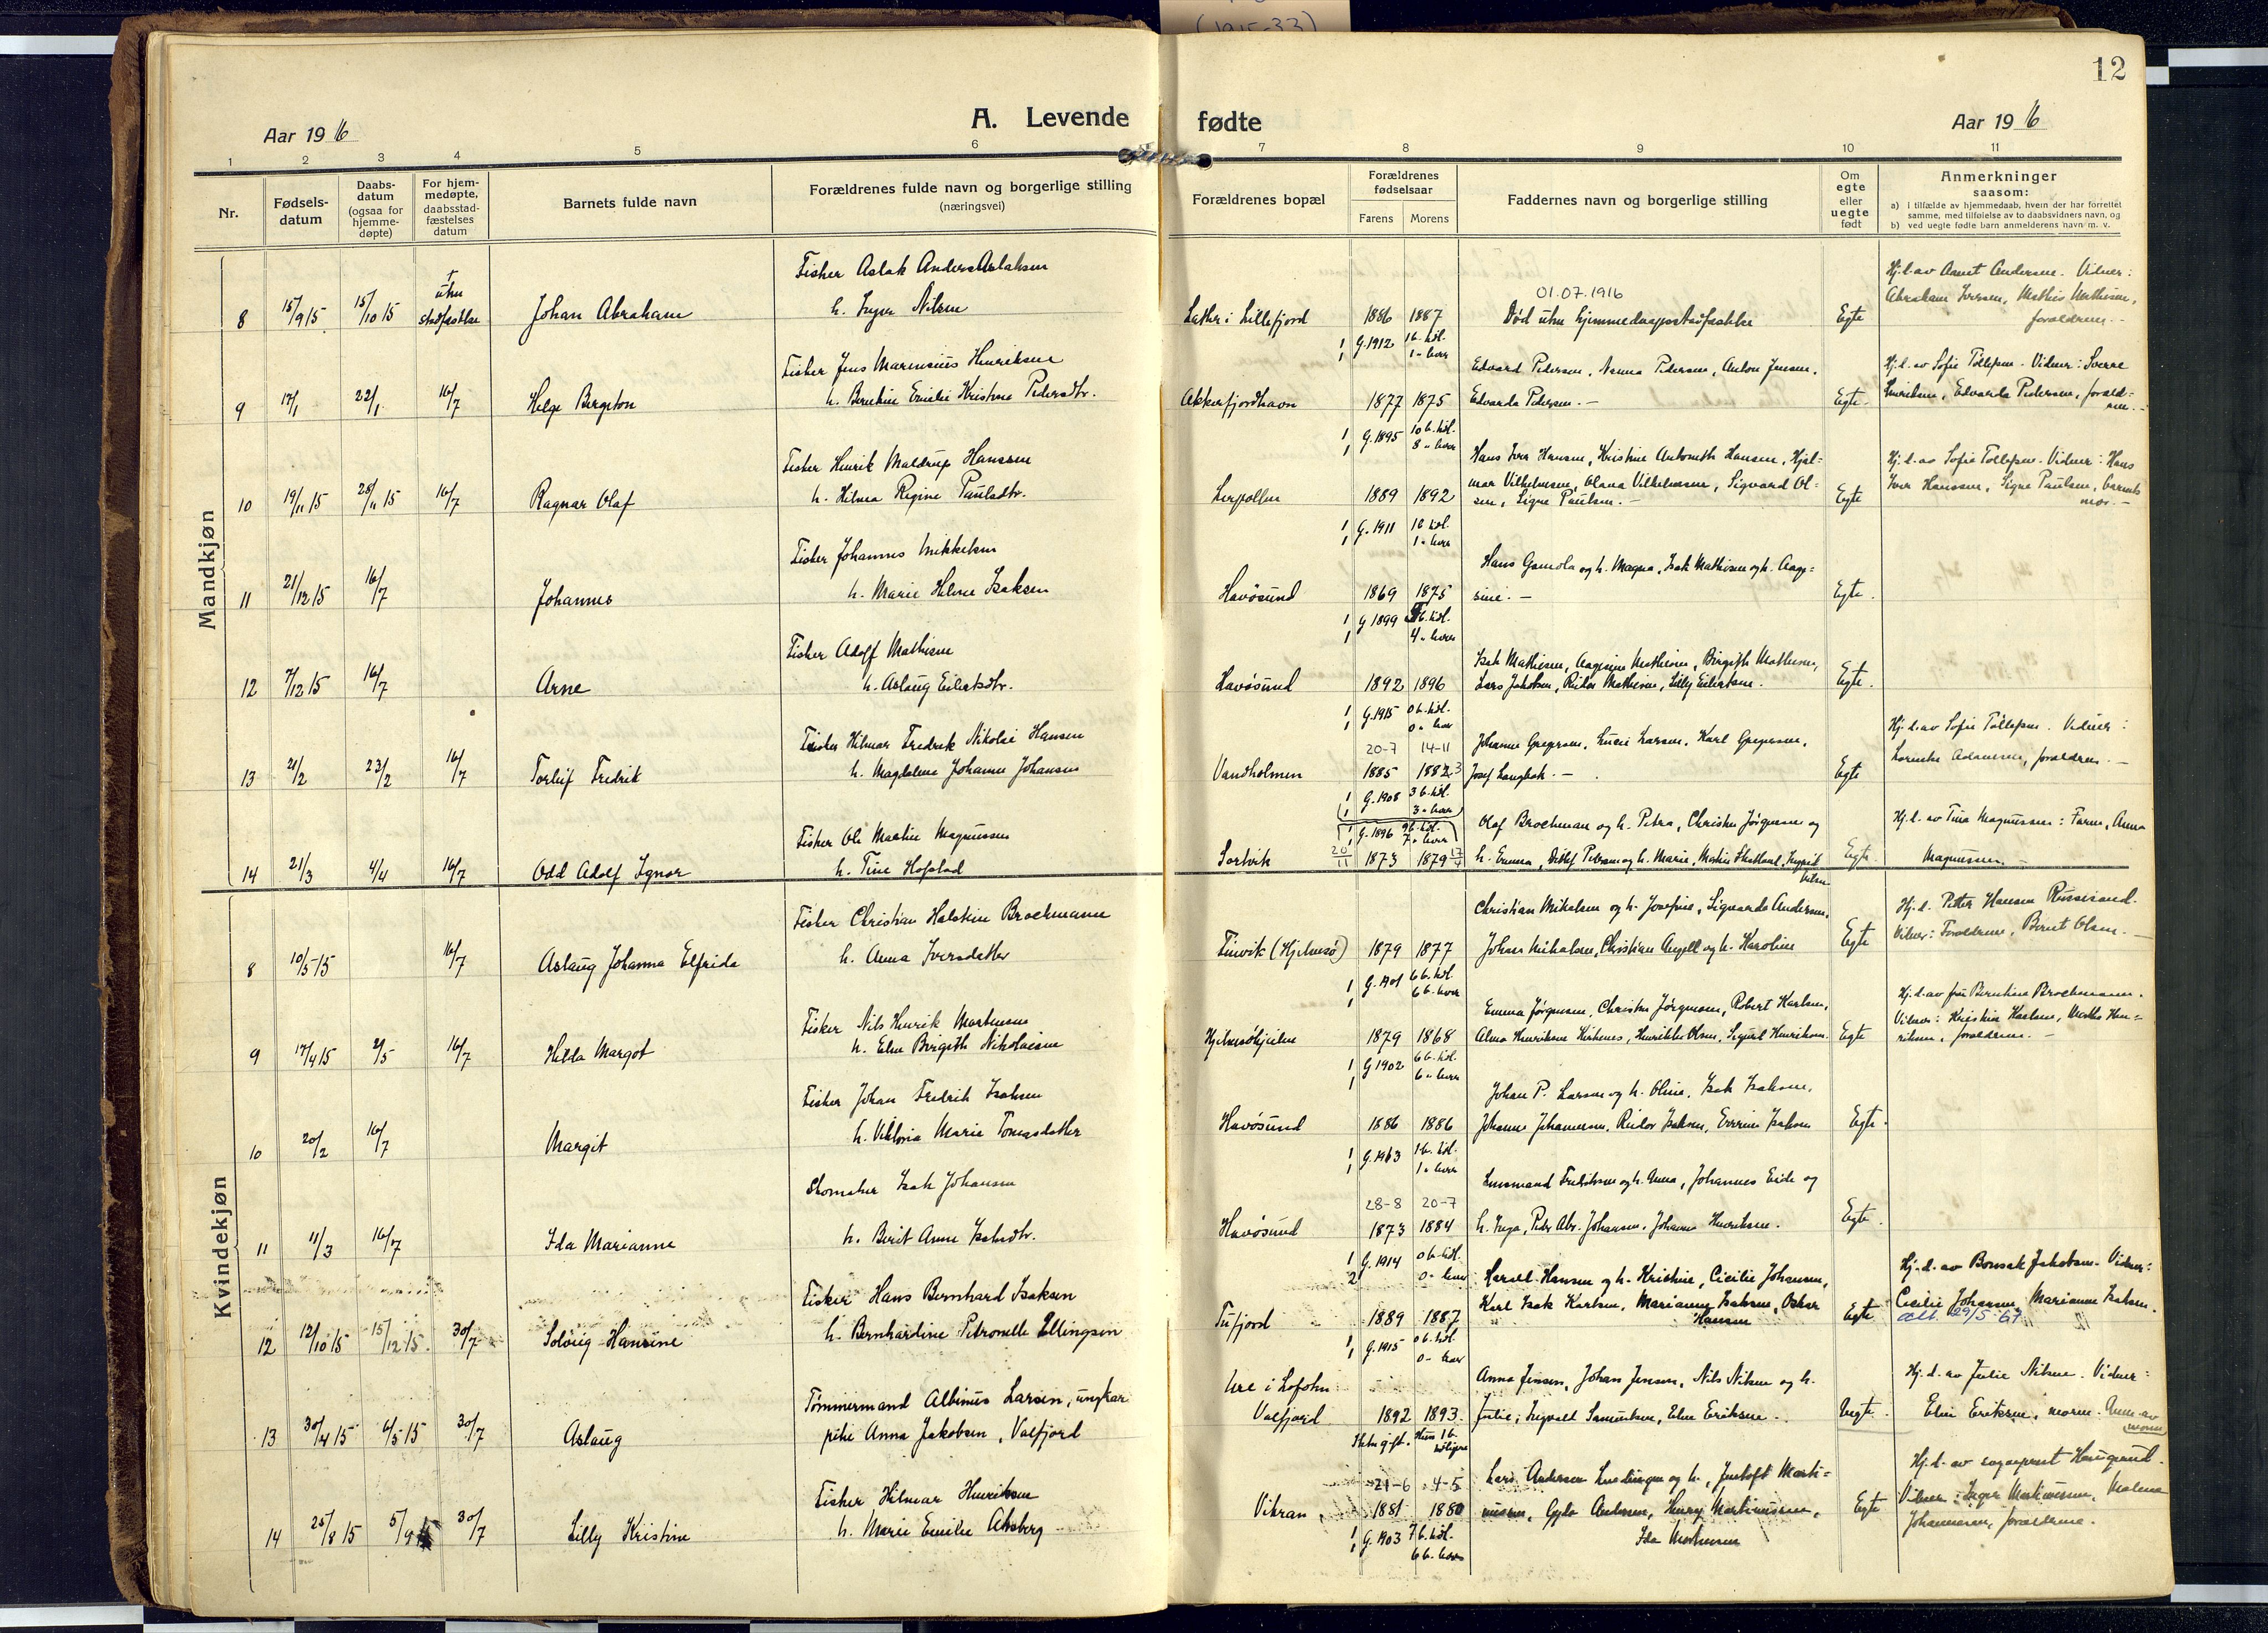 (1915-33)
12
A. Levende fødte
Aar 1916
Aar 1916
1 2 3 4 5 6 7 8 9 10 11
Nr.
Fødsels-
datum
Daabs-
datum
(ogsaa for
hjemme-
døpte)
For hjem-
medøpte,
daabsstad-
fæstelses
datum
Barnets fulde navn
Forældrenes fulde navn og borgerlige stilling
(næringsvei)
Forældrenes bopæl
Forældrenes
fødselsaar
Farens Morens
Faddernes navn og borgerlige stilling
Om
egte
eller
uegte
født
Anmerkninger
saasom:
a) i tilfælde av hjemmedaab, hvem der har forrettet
samme, med tilføielse av to daabsvidners navn, og
b) ved uegte fødte barn anmelderens navn m. v.
Mandkjøn
Fisker Aslak Anders Aslaksen
8 15/9 15 15/10 15 † uten stadfæstelse Johan Abraham h. Inger Nilsen
Latter i Lillefjord 1886 1887 Død uten hjemmedaapsstadfæstelse Egte
01.07.1916
Hj.d. av Anders Andersen. Vidner:
Abraham Iversen, Mathis Mathisen,
forældrene. -
1/1 G. 1912 1 b. htil. 1 " lever
Fisker Jens Marensius Henriksen
9 17/1 22/1 16/7 Helge Bergeton h. Berntine Emilie Kristine Pedersdtr.
Akkerfjordhavn 1877 1875 Egte
Edvard Pedersen, Nanna Pedersen, Anton Jensen,
Edvarda Pedersen. -
Hj.d. av Sofie Tollefsen. Vidner: Sverre
Henriksen, Edvarda Pedersen, foræld-
rene. -
1/1 G. 1895 10 b. htil. 8 " lever
Fisker Henrik Maldrup Hanssen
10 19/11 15 28/11 15 16/7 Ragnar Olaf h. Hilma Regine Paulsdtr.
Lerpollen 1889 1892 Egte
Hans Iver Hansen, Kristine Antonette Hansen, Hjal-
mar Vilhelmsen, Olana Vilhelmsen, Sigvard Ol-
sen, Signe Paulsen. -
Hj.d. av Sofie Tollefsen. Vidner: Hans
Iver Hanssen, Signe Paulsen, barnets
mor. -
1/1 G. 1911 1 b. htil. 1 " lever
Fisker Johannes Mikkelsen
11 21/12 15 16/7 Johannes h. Marie Helene Isaksen
Havösund 1869 1875 Egte.
Hans Gamola og h. Magna, Isak Mathisen og h. Aage-
sine. -
1/1 G 1899 b. htil. 4 " lever
Fisker Adolf Mathisen
12 7/12 15 16/7 Arne h. Aslaug Eilertsdtr.
Havösund 1892 1896 Egte.
Isak Mathisen, Aagesine Mathisen, Birgith Mathisen,
Lars Jakobsen, Reidar Mathisen, Lilly Eilertsen.
1/1 G. 1915 0 b. htil. 0 " lever
Fisker Hilmar Fredrik Nikolai Hansen
13 21/2 23/2 16/7 Torleif Fredrik h. Magdalena Johanne Johansen
Vandholmen 20-7 1885 14-11 1882 3 Egte
Johanne Gregersen, Lucie Larsen, Karl Gregersen,
Josef Langbak. -
Hj.d. av Sofie Tollefsen. Vidner:
Adamsen, forældrene. -
1/1 G. 1908 3 b. htil. 3 " lever
Fisker Ole Martin Magnussen
14 21/3 4/4 16/7 Odd Adolf Ignar h. Tine Hofstad
1/1 G. 1896 9 b. htil. 7 " lever
Sortvik 20/11 1873 1879 17/4 Egte.
Olaf Brochman og h. Petra, Christen Jörgensen og
h. Emma, Detlef Petersen og h. Marie, Martin Skotland, Ingrid
Nilsen
Hj.d. av Tina Magnussen: Faren, Anna
Magnussen. -
Kvindekjøn
Fisker Christian Halstein Brochmann
8 10/5 15 16/7 Aslaug Johanna Elfrida h. Anna Iversdatter
Finvik (Hjelmsö) 1879 1877 Egte
Christian Mikalsen og h. Josefine, Sigvarda Andersen,
Johan Mikalsen, Christian Angell og h. Karoline
Hj.d. Petter Hansen Russesund.
Vidner: Forældrene, Bernt Olsen. -
1/1 G. 1901 6 b. htil. 6 b. lever
Fisker Nils Henrik Mortensen
9 17/4 15 2/5 16/7 Helda Margot h. Elen Birgith Nikolaisen
Hjelmsökjeilen 1879 1868 Egte
Emma Jörgensen, Christen Jörgensen, Robert Karlsen,
Alma Henriksen Kirkenes, Henrikke Olsen, Sigurd Henriksen.
Hj.d. av fru Berntine Brochmann.
Vidner: Kristine Karlsen, Mathis Hen-
riksen, forældrene. -
1/1 G 1902 6 b. htil. 6 " lever
Fisker Johan Fredrik Isaksen
10 20/2 16/7 Margit h. Viktoria Marie Tomasdatter
Havösund 1886 1886 Egte.
Johan P. Larsen og h. Oline, Isak Isaksen,
Johanne Johannesen, Reidar Isaksen, Everine Isaksen
1/1 G. 1903 1 b. htil. 1 " lever
Skomaker Isak Johansen
11 11/3 16/7 Ida Marianne h. Berit Anne Isaksdtr.
Havösund 28-8 1873 20-7 1884 Egte.
Fredriksen og h. Anna, Johannes Eide og
h. Inga, Peder Abr. Johansen, Johanne Henriksen.
1/2 G. 1914 0 b. htil. 0 - lever
Fisker Hans Bernhard Isaksen
12 12/10 15 15/12 15. 30/7 Solveig Hansine h. Bernhardine Petronelle Ellingsen
Tufjord 1889 1887 Egte
Harald Hansen og h. Kristine, Cicilie Johansen,
Karl Isak Karlsen, Marianne Isaksen, Oskar
Hansen
Hj.d. av Bonsak Jakobsen. Vidner:
Cecilie Johansen, Marianne Isaksen.
att. 29/5 67
1/1 G. 1915 0 b. htil. 0 - lever
Tömmermand Albinus Larsen, ungkar
13 30/4 15 6/5 15 30/7 Aslaug pike Anna Jakobsen, Valfjord
Ure i Lofoten
Valfjord 1892 1893. Uegte.
Anna Jensen, Johan Jensen, Nils Nilsen og h.
Julie, Ingvald Samuelsen, Elen Eriksen.
Hj.d. av Julie Nilsen. Vidner:
Elen Eriksen, moren. Anm. av
moren
Ikke gift. Hun 1 b. tidligere
Fisker Hilmar Henriksen
14 25/8 15 5/9 15 30/7 Lilly Kristine h. Marie Emilie Ahsberg
Vikran 21-6 1881 4-5 1880 Egte
Lars Andersen og h., Jentoft Marti-
nussen, Gyda Andersen, Henry Martinussen,
Ida Mortensen
Hj.d. av sogneprest Haugsrud.
Vidner: Inger Martinussen, Malene
Johannesen, forældrene.
1/1 G. 1903 7 b. htil. 6 b. lever